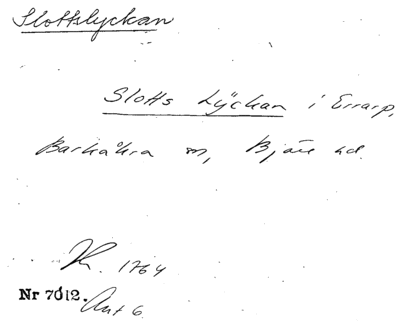 Slottslyckan
Slotts Lÿckan i Errarp,
Barkåkra sn, Bjäre hd.
1764
Nr 7012.
Akt 6